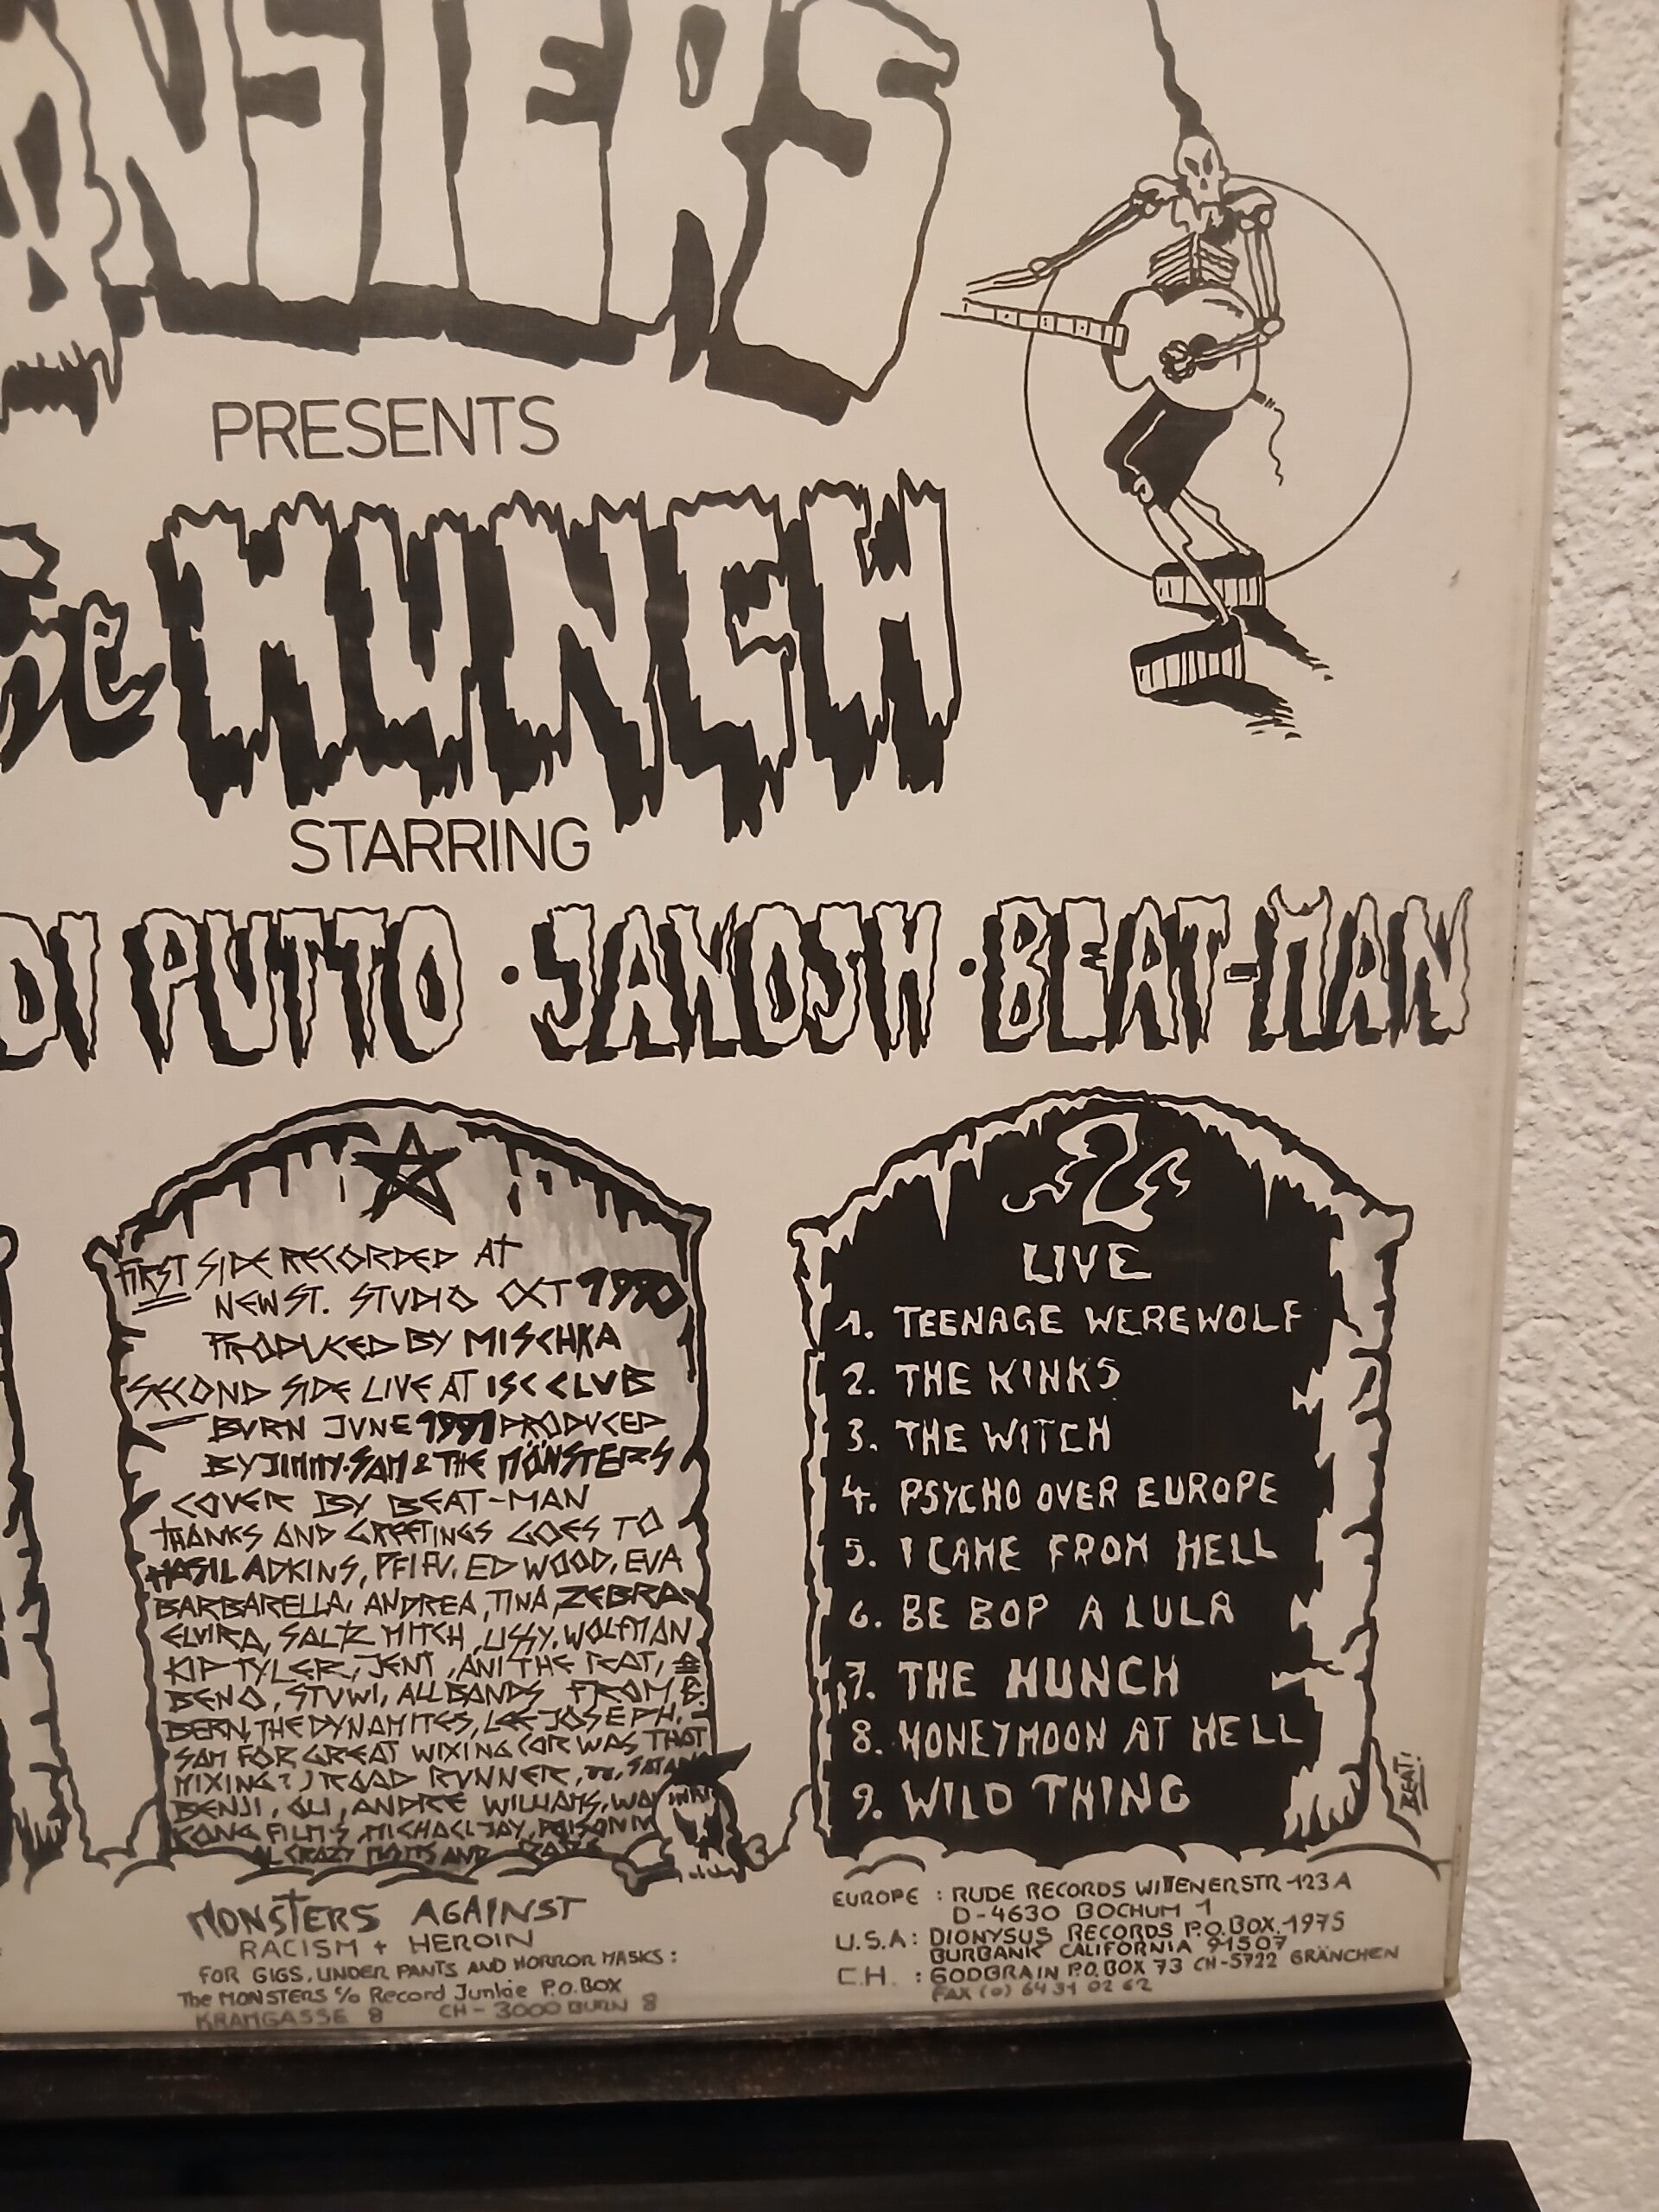 NSTERS
PRESENTS
he HUNCH
STARRING
DI PUTTO · JANOSH · BEAT-MAN
FIRST SIDE RECORDED AT
NEW ST. STUDIO OCT 1990
PRODUCED BY MISCHKA
SECOND SIDE LIVE AT ISC CLUB
BURN JUNE 1991 PRODUCED
BY JIMMY·SAM & THE MÖNSTERS
COVER BY BEAT-MAN
THANKS AND GREETINGS GOES TO
HASIL ADKINS, PFIFU, ED WOOD, EVA
BARBARELLA, ANDREA, TINA, ZEBRA
ELVIRA, SALTZ MITCH, LISSY, WOLFMAN
KIP TYLER, JENI, ANI THE
BENO, STUWI, ALL BANDS FROM B.
BERN, THE DYNAMITES, LEE JOSEPH,
SAM FOR GREAT WIXING (OR WAS THAT
MIXING?) ROAD RUNNER, SATAN
BENJI, OLI, ANDRE WILLIAMS,
KONG FILMS, MICHAEL JAY, POISON
CRAZY AND
2
LIVE
1. TEENAGE WEREWOLF
2. THE KINKS
3. THE WITCH
4. PSYCHO OVER EUROPE
5. I CAME FROM HELL
6. BE BOP A LULA
7. THE HUNCH
8. HONEYMOON AT HELL
9. WILD THING
BEAT!
MONSTERS AGAINST
RACISM + HEROIN
FOR GIGS, UNDER PANTS AND HORROR MASKS:
The MONSTERS c/o Record Junkie P.O.BOX
KRAMGASSE 8 CH-3000 BURN 8
EUROPE : RUDE RECORDS WITTENERSTR 123 A
D-4630 BOCHUM 1
U.S.A: DIONYSUS RECORDS P.O.BOX.1975
BURBANK CALIFORNIA 91507
C.H. : GODBRAIN P.O.BOX 73 CH-5722 GRÄNCHEN
FAX (0) 64 31 02 62